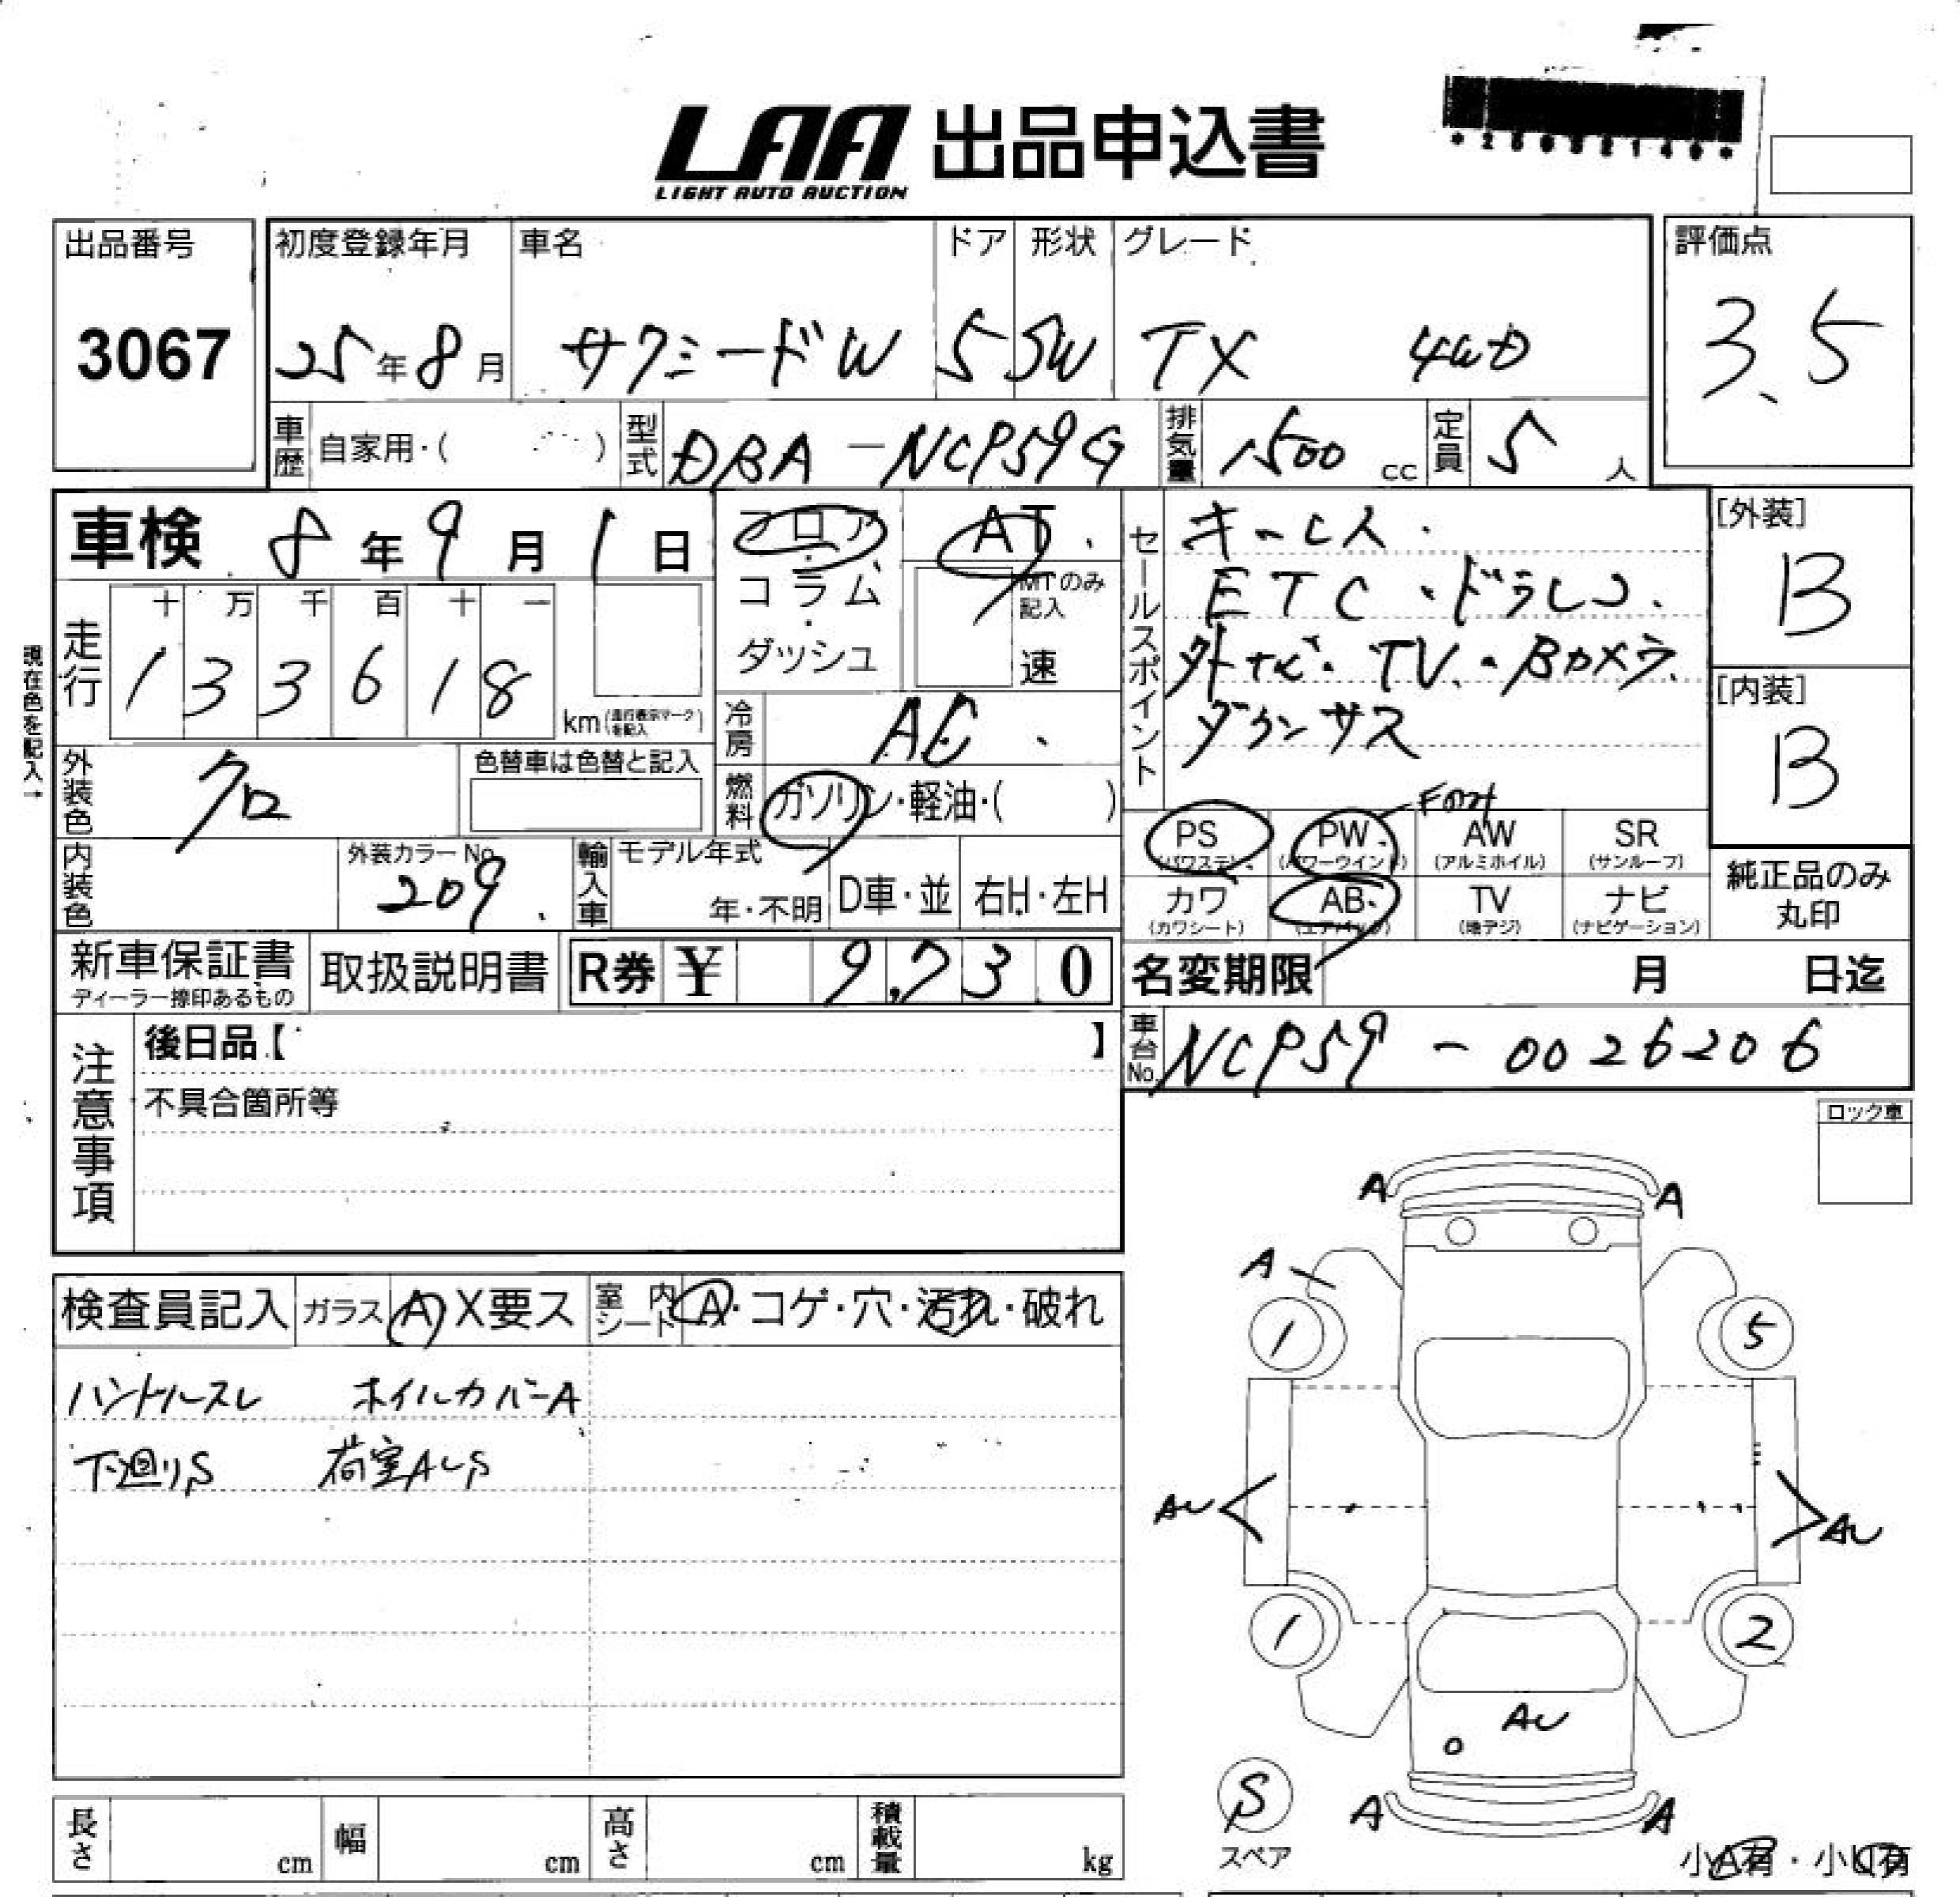 LAA 出品申込書
LIGHT AUTO AUCTION
*28032140*
出品番号 初度登録年月 車名 ドア 形状 グレード 評価点
3067 25年8月 サクシードW 5 SW TX 4WD 3.5
車歴 自家用・( ) 型式 DBA-NCP59G 排気量 1500 cc 定員 5 人
車検 8年9月1日 フロア・コラム・ダッシュ AT MTのみ記入 速
セールスポイント
キーレス.
ETC・ドラレコ.
外ナビ・TV.・Bカメラ.
ダウンサス
[外装]
B
[内装]
B
現在色を記入→
走行 十 万 千 百 十 一
1 3 3 6 1 8 km (走行表示マークを記入)
冷房 AC
外装色 クロ 色替車は色替と記入 燃料 ガソリン・軽油・( )
内装色 外装カラーNo. 209 輸入車 モデル年式 年・不明 D車・並 右H・左H
PS (パワステ) PW (パワーウインド) Fのみ AW (アルミホイル) SR (サンルーフ)
カワ (カワシート) AB (エアバック) TV (地デジ) ナビ (ナビゲーション)
純正品のみ
丸印
新車保証書 ディーラー捺印あるもの 取扱説明書 R券 ¥ 9,730 名変期限 月 日迄
注意事項 後日品【 】 車台No. NCP59-0026206
不具合箇所等
ロック車
検査員記入 ガラス A X要ス 室内シート A・コゲ・穴・汚れ・破れ
ハンドルスレ ホイルカバーA
下廻りS 荷室AUS
A A
A
1 5
AU AU
1 2
AU
S
スペア
A A
小A有・小U有
長さ cm 幅 cm 高さ cm 積載量 kg